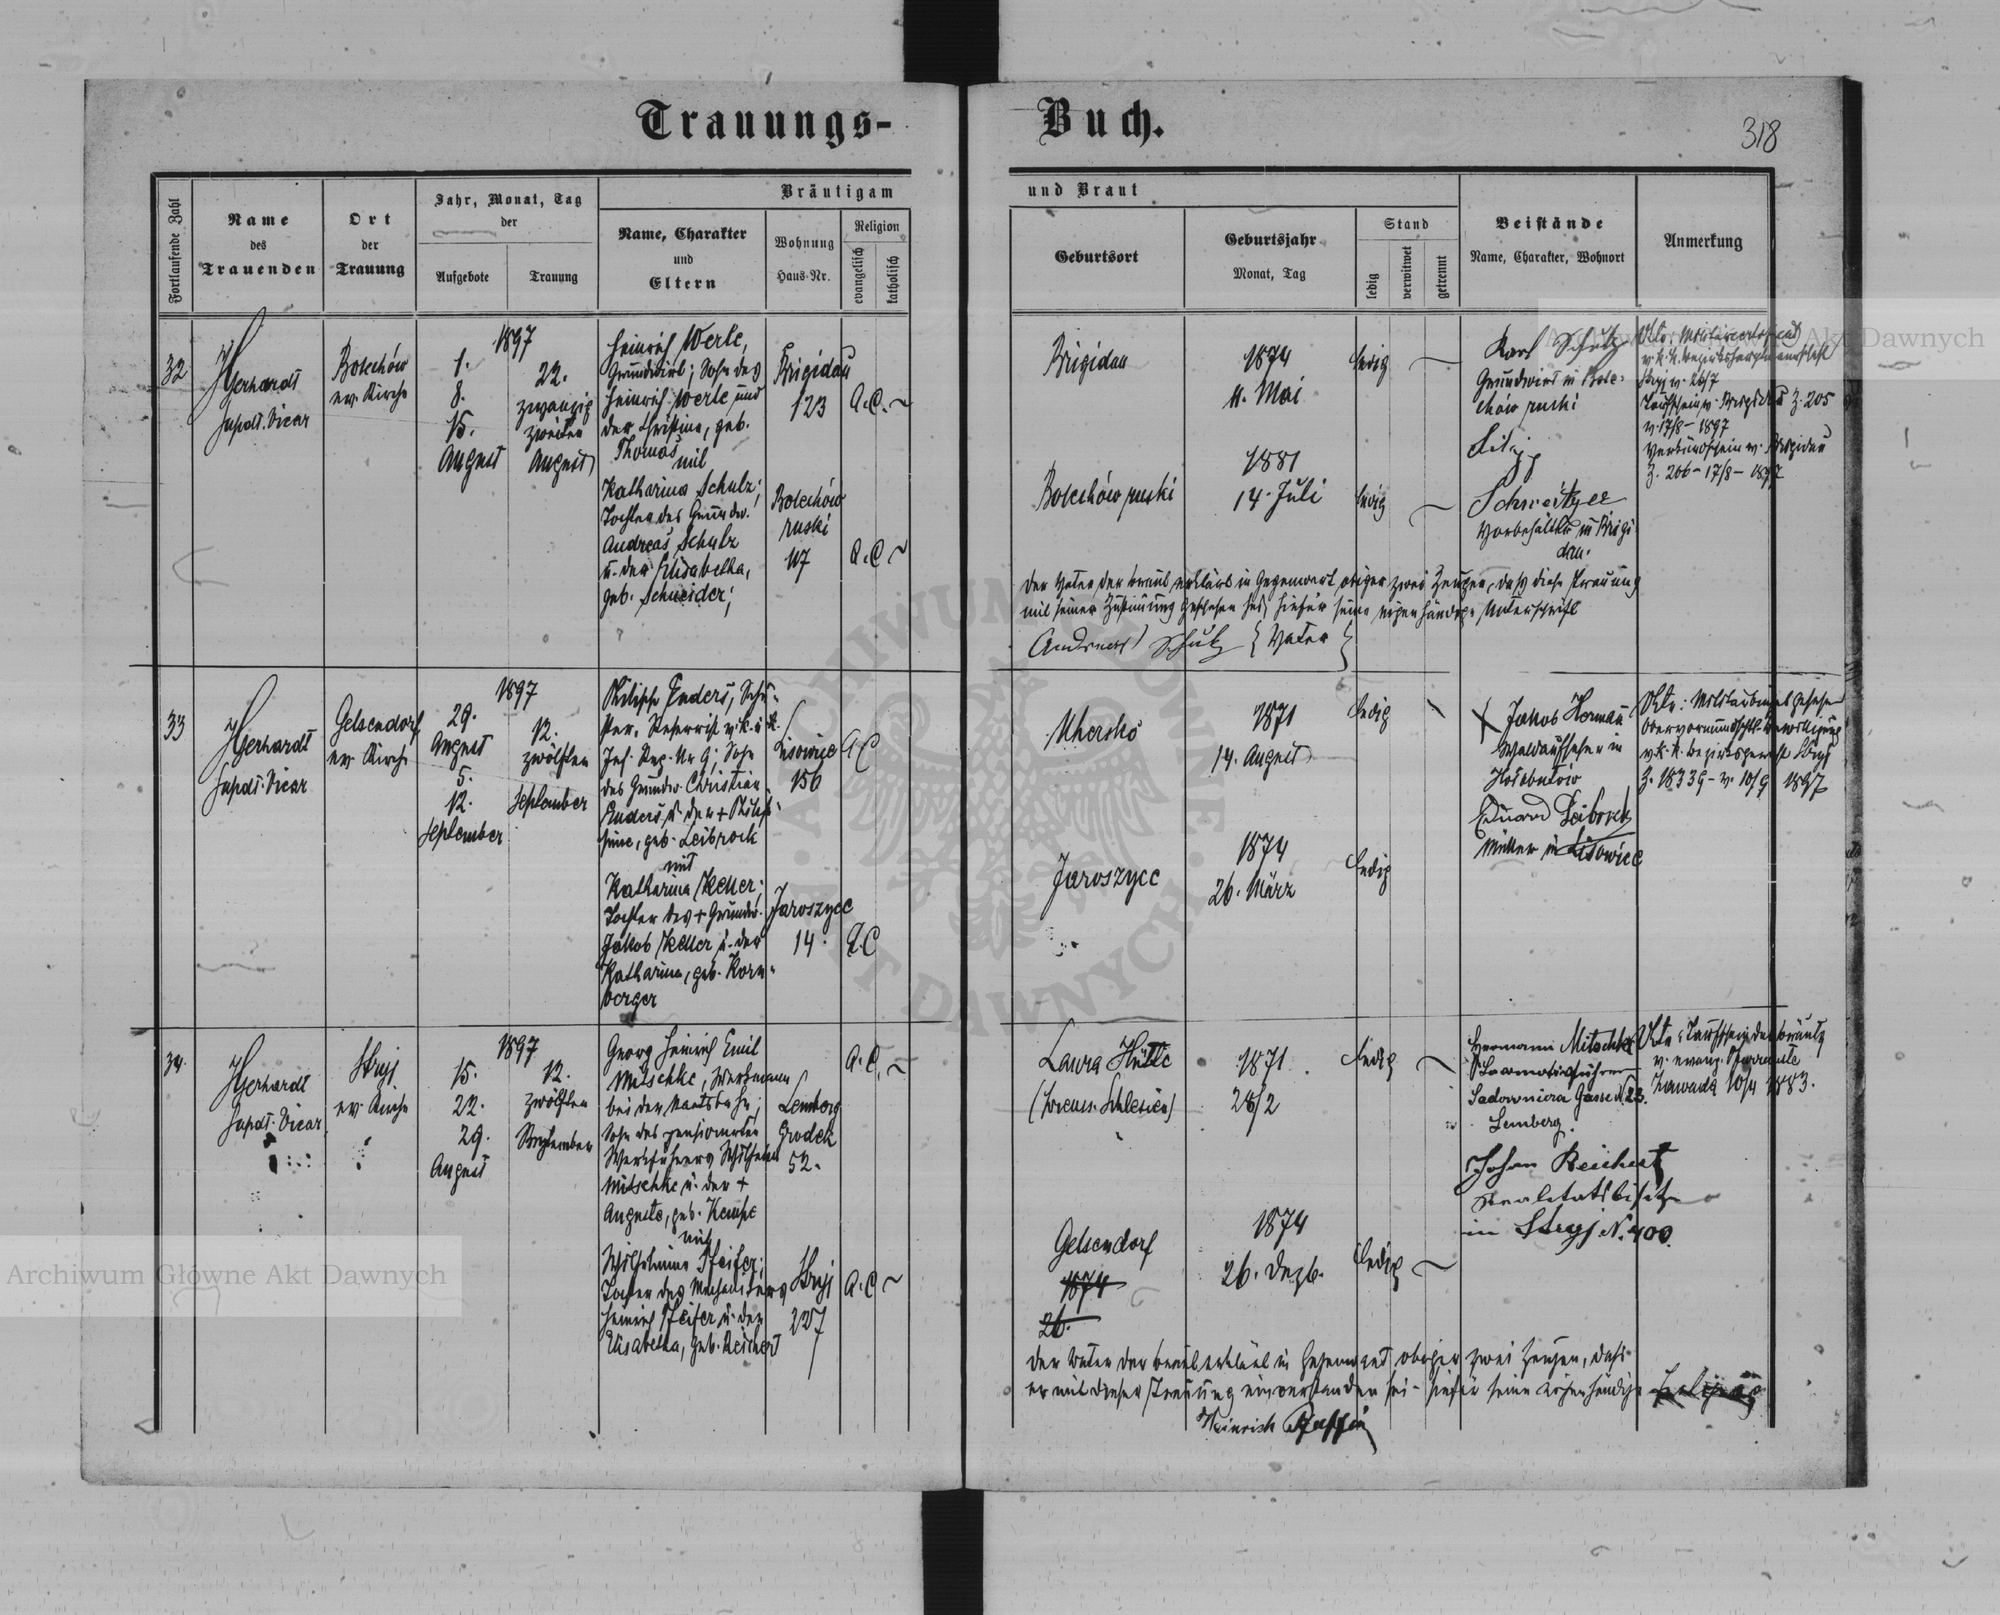 Trauungs-Buch.
318
Fortlaufende Zahl
Name
des
Trauenden
Ort
der
Trauung
Jahr, Monat, Tag
der
Aufgebote
Trauung
Bräutigam
und Braut
Name, Charakter
und
Eltern
Wohnung
Haus-Nr.
Religion
evangelisch
katholisch
Geburtsort
Geburtsjahr
Monat, Tag
Stand
ledig
verwitwet
getrennt
Beistände
Name, Charakter, Wohnort
Anmerkung
32
Gerhardt
Supdt. Vicar
Bolechów
ev. Kirche
1897
1.
8.
15.
August
22.
zwanzig
zweiten
August
Heinrich Werle,
Grundwirt; Sohn des
Heinrich Werle und
der Christine, geb.
Thomas
mit
Katharina Schulz;
Tochter des Grundw.
Andreas Schulz
u. der Elisabetha,
geb. Schneider;
Brigidau
123
A.C.
Bolechów
ruski
117
A.C.
Brigidau
1874
11. Mai
ledig
Bolechów ruski
1881
14. Juli
ledig
Karl Schulz
Grundwirt in Bole-
chów ruski
Filipp
Schweitzer
in Brigi-
dau.
v. 17/8 - 1897
Verkündschein v. Brigidau
Z. 206 - 17/8 - 1897
Der Vater der Braut erklärt in Gegenwart obiger zwei Zeugen, daß diese Trauung
mit seiner Zustimmung geschehen sei; hiefür seine eigenhändige Unterschrift
Andreas Schulz { Vater }
33
Gerhardt
Supdt. Vicar
Gelsendorf
ev. Kirche
1897
29.
August
5.
12.
September
12.
zwölften
September
Philipp Enders, Schu-
ster, Reservist v. k. u. k.
Inf. Reg. Nr 9; Sohn
des Grundw. Christian
Enders u. der + Philip-
pine, geb. Leibrock
mit
Katharina Keller;
Tochter des + Grundw.
Jakob Keller u. der
Katharina, geb. Korn-
berger
Lisowice
156
A.C
Jaroszyce
14.
A.C
Uhersko
1871
14. August
ledig
Jaroszyce
1874
26. März
ledig
Jakob Herman
Waldaufseher in
Eduard Leibrock
Müller in Lisowice
v. k. k. Bezirksgericht Stryj
Z. 18339 - v. 10/9 1897
34.
Gerhardt
Supdt. Vicar
Stryj
ev. Kirche
1897
15.
22.
29.
August
12.
zwölften
September
Georg Heinrich Emil
Mitschke, Werkmann
bei der Staatsbahn;
Sohn des pensionirten
Werkführers Wilhelm
Mitschke u. der +
Auguste, geb. Kempe
mit
Wilhelmine Pfeifer;
Tochter des
Heinrich Pfeifer u. der
Elisabetha, geb. Reichert
Lemberg
Grodek
52.
A.C.
Stryj
257
A.C
Laura Hütte
(Preuss. Schlesien)
1871
28/2
ledig
Gelsendorf
1874
26.
1874
26. Dezb.
ledig
Hermann Mitschke
Locomotivführer
Sadownicza Gasse N 23.
Lemberg.
Johan Reichert
Realitätsbesitzer
in Stryj N. 400.
v. evang. Pfarramte
Zawada 10/4 1883.
Der Vater der Braut erklärt in Gegenwart obiger zwei Zeugen, daß
er mit dieser Trauung einverstanden sei - hiefür seine eigenhändige
Heinrich Pfeifer
Archiwum Główne Akt Dawnych
Archiwum Główne Akt Dawnych
ARCHIWUM GŁÓWNE AKT DAWNYCH